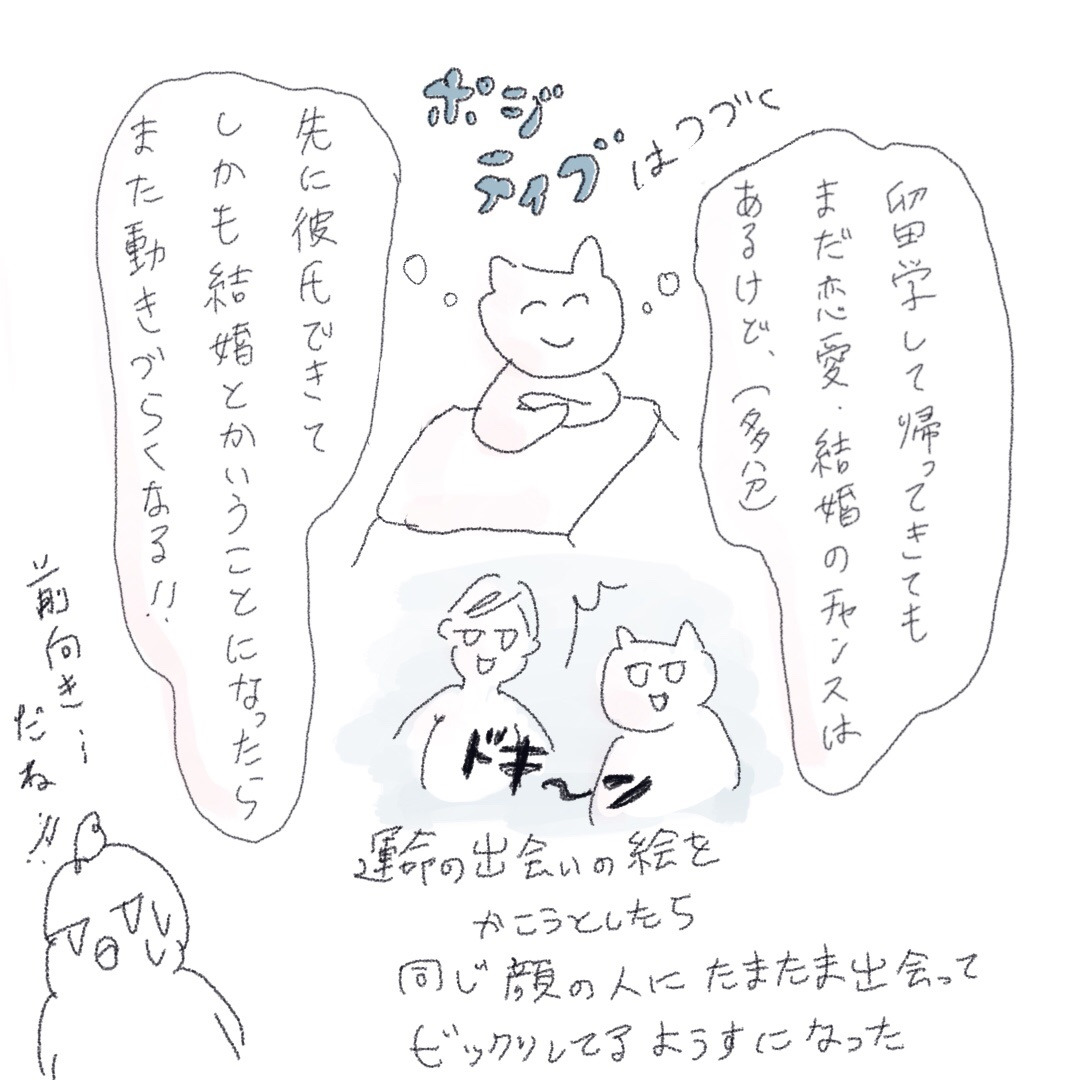 ポジ
ティブはつづく
留学して帰ってきても
まだ恋愛・結婚のチャンスは
あるけど、(多分)
先に彼氏できて
しかも結婚とかいうことになったら
また動きづらくなる!!
ドキ〜ン
運命の出会いの絵を
かこうとしたら
同じ顔の人にたまたま出会って
ビックリしてるようすになった
前向き…
だね!!